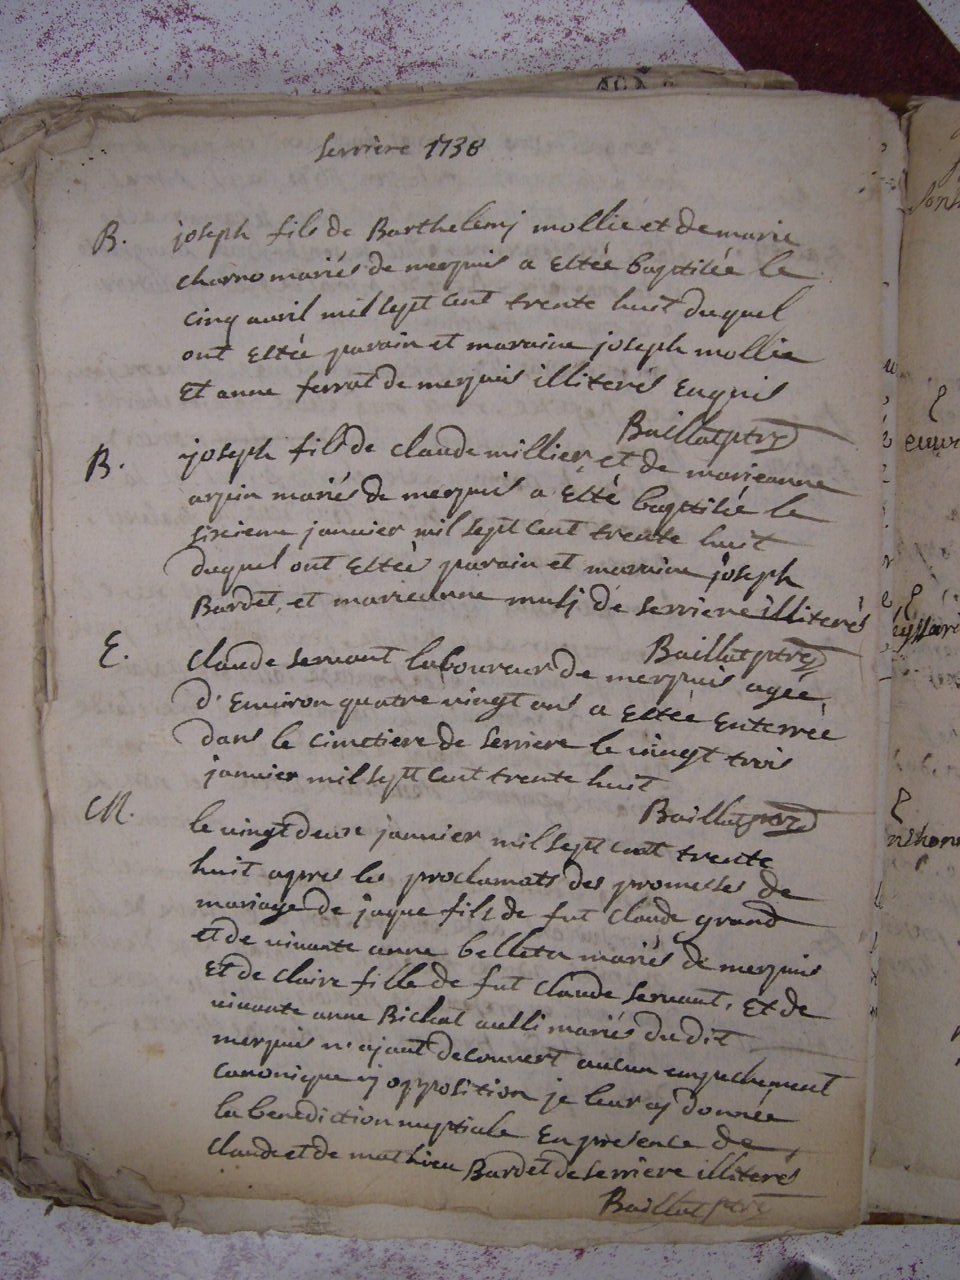 Serrière 1738
B. joseph fils de Barthelemj mollie et de marie
charno mariés de merpuis a Estée baptisée le
cinq avril mil sept cent trente huit duquel
ont Estée parain et maraine joseph mollie
Et anne ferrat de merpuis illiterés Enquis
Baillat ptre
B. joseph fils de claude millier et de marieanne
arpin mariés de merpuis a Esté baptisée le
sisieme janvier mil sept cent trente huit
duquel ont Estéé parain et maraine joseph
Bardet, et marieanne musj de serriere illiterés
Baillat ptre
E. claude servant laboureur de merpuis agéé
d'Environ quatre vingt ans a Estée Enterréé
dans le cimetiere de serriere le vingt trois
janvier mil sept cent trente huit
Baillat ptre
M. le vingt deux janvier mil sept cent trente
huit apres les proclamats des promesses de
mariage de jaque fils de fut claude grand
et de vivante anne belleta mariés de merpuis
Et de claire fille de fut claude servant, Et de
vivante anne Bichat aussi mariés du dit
merpuis n'ajant decouvert aucun empechement
canonique nj opposition je leur aj donnée
la benediction nuptiale En presence de
claude et de mathieu Bardet de serriere illiterés
Baillat ptre